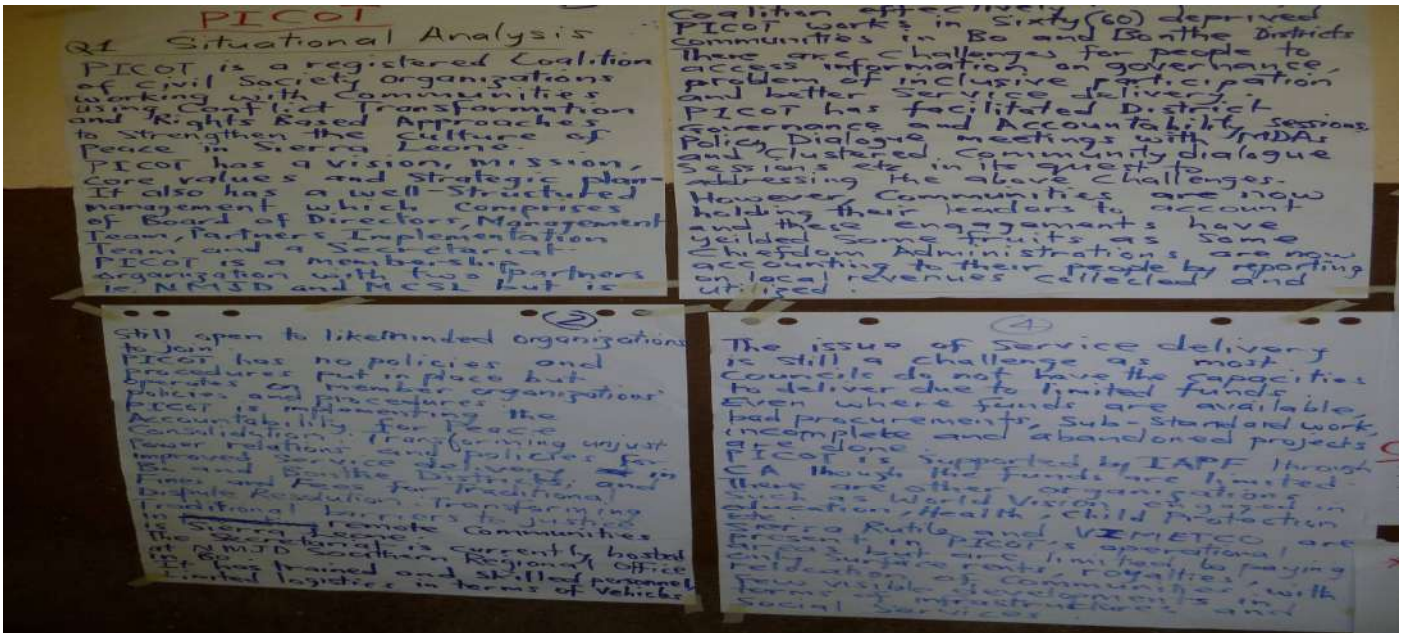 PICOT
Q1 Situational Analysis
PICOT is a registered Coalition
of Civil Society Organizations
working with Communities
using Conflict Transformation
and Rights Based Approaches
to Strengthen the Culture of
Peace in Sierra Leone.
PICOT has a vision, mission,
Core values and Strategic plan
It also has a well-Structured
management which Comprises
of Board of Directors, Management
Team, Partners Implementation
Team and a Secretariat
PICOT is a membership
organization with two partners
ie, NMJD and MCSL but is
②
Still open to likeminded organizations
to join.
PICOT has no policies and
procedures put in place but
operates on member organizations'
Policies and Procedures.
PICOT is implementing the
Accountability for Peace
Consolidation: Transforming unjust
Power relations and policies for
improved Service delivery in
Bo and Bonthe Districts, and
Fines and Fees for Traditional
Dispute Resolution: Transforming
traditional barriers to justice
in Sierra Leone remote Communities
The Secretariat is currently hosted
at NMJD Southern Regional Office
in Bo.
It has trained and skilled personnel
limited logistics in terms of vehicles
Coalition effectively
PICOT works in Sixty (60) deprived
communities in Bo and Bonthe Districts
There are Challenges for people to
access information on governance,
problem of inclusive participation
and better Service delivery.
PICOT has facilitated District
Governance and Accountability Sessions,
Policy Dialogue meetings with MDAs
and Clustered Community dialogue
Sessions etc in its quest to
addressing the above Challenges.
However, Communities are now
holding their leaders to account
and these engagements have
yeilded Some fruits as Some
Chiefdom Administrations are now
accounting to their people by reporting
on local revenues Collected and
utilized.
④
The issue of Service delivery
is Still a challenge as most
Councils do not have the Capacities
to deliver due to limited funds.
Even where funds are available,
bad procurements, Sub-Standard work,
incomplete and abandoned projects
are done
PICOT is Supported by IAPF through
CA though the funds are limited.
There are other organizations
Such as World Vision engaged in
education, Health, Child Protection
etc.
Sierra Rutile and VIMETCO are
present in PICOT's operational
areas but are limited to paying
Surface rents, royalties,
of Communities, with
few visible developments in
terms of infrastructures and
Social Services.